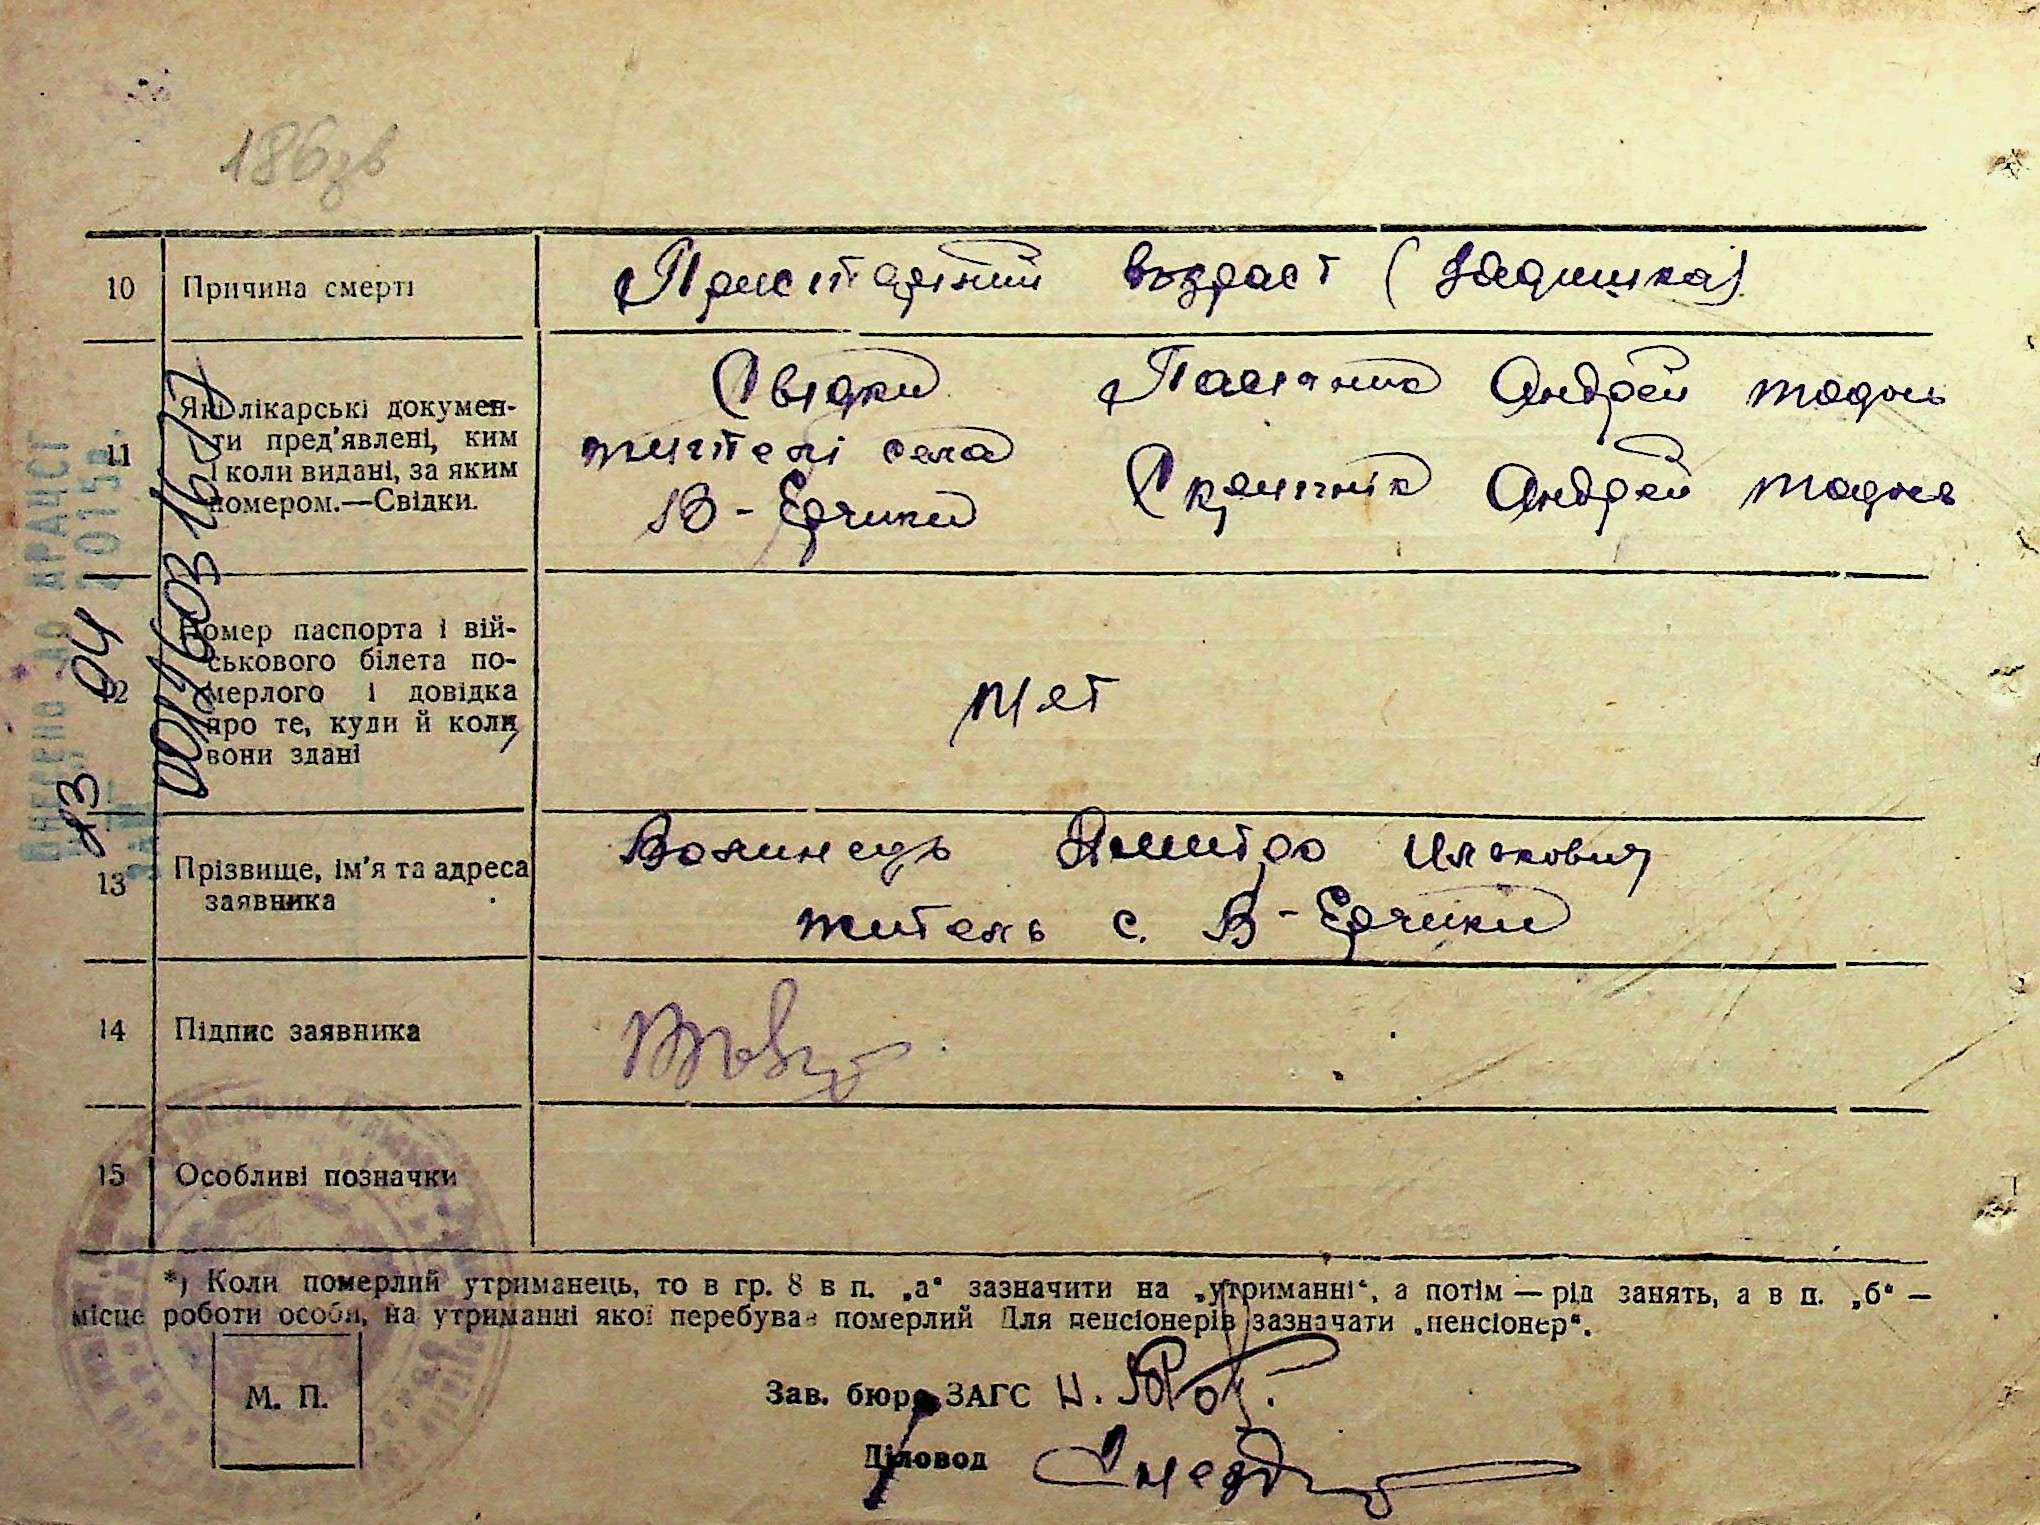 186зв
10 Причина смерті Пристарілий возраст (Задишка)
11 Які лікарські докумен-
ти пред'явлені, ким
і коли видані, за яким
номером.—Свідки.
Свідки Андрей
жителі села
В-Ерчики Андрей
12 Номер паспорта і вій-
ськового білета по-
мерлого і довідка
про те, куди й коли
вони здані
Нет
13 Прізвище, ім'я та адреса
заявника
Волинець Дмитро
житель с. В-Ерчики
14 Підпис заявника
15 Особливі позначки
*) Коли померлий утриманець, то в гр. 8 в п. „а“ зазначити на „утриманні“, а потім — рід занять, а в п. „б“ —
місце роботи особи, на утриманні якої перебував померлий Для пенсіонерів зазначати „пенсіонер“.
М. П.
Зав. бюро ЗАГС
Діловод